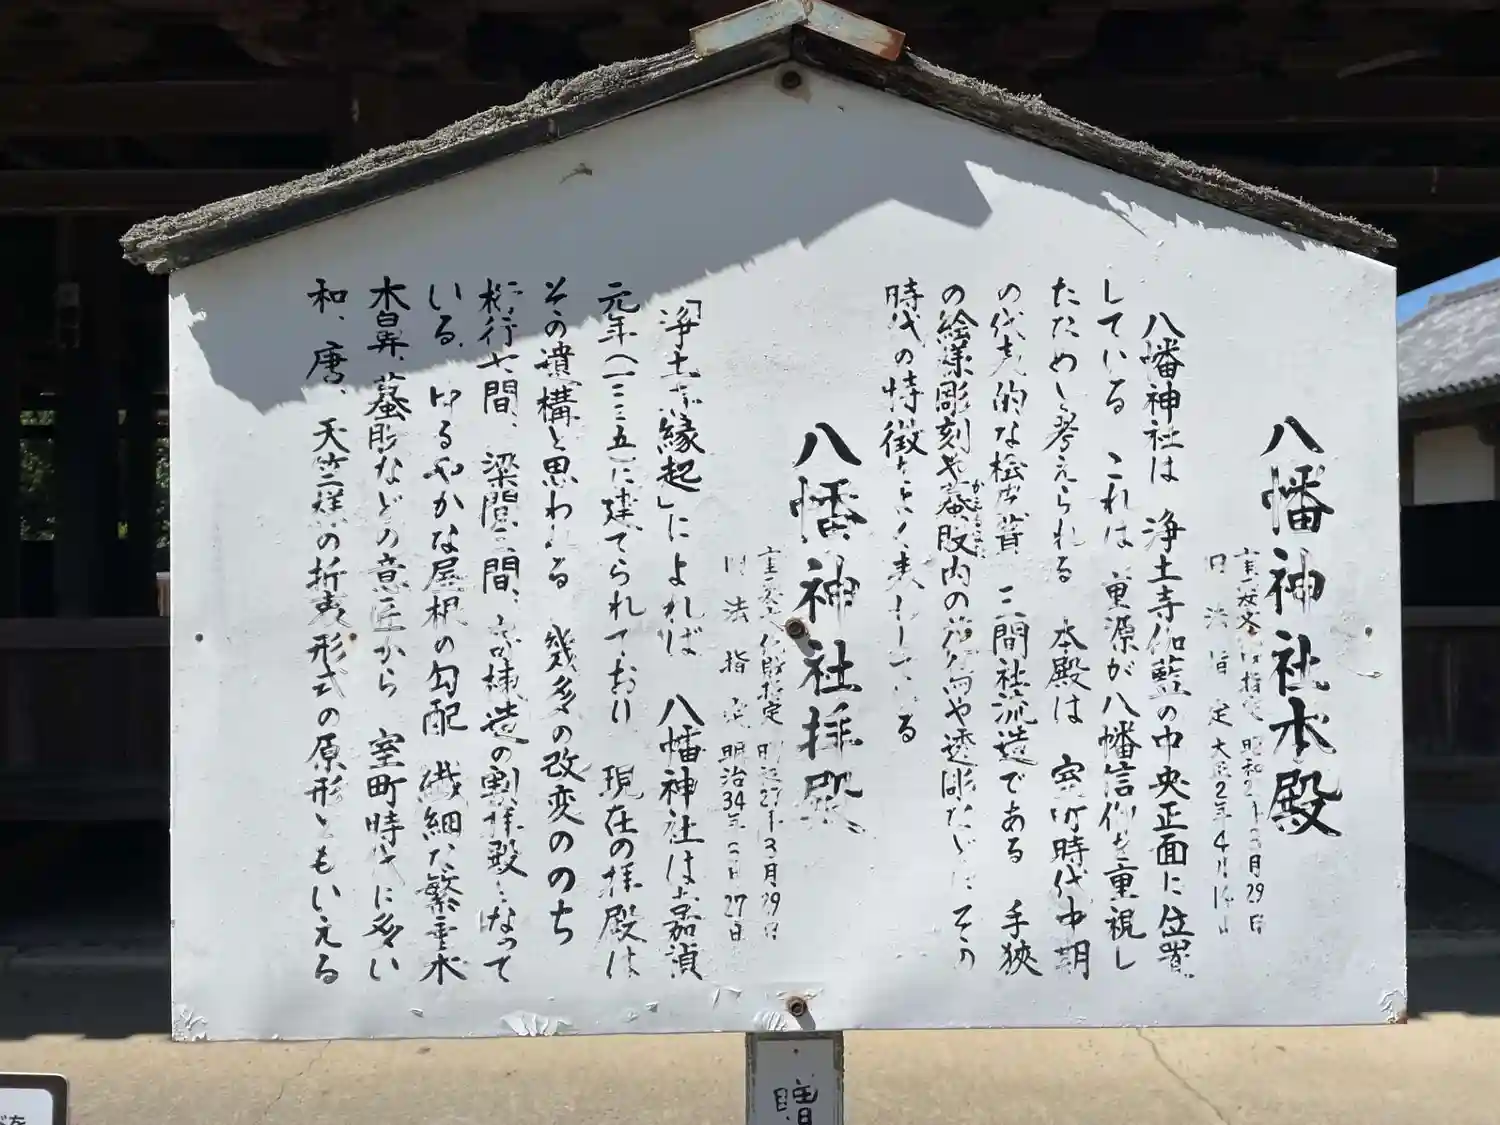 八幡神社本殿
重要文化財指定 昭和 年3月29日
旧法指定 大正2年4月14日
八幡神社は 浄土寺伽藍の中央正面に位置
している これは 重源が八幡信仰を重視し
たためと考えられる 本殿は 室町時代中期
の代表的な桧皮葺 三間社流造である 手狭
の絵様彫刻や蟇股内の や透彫などに その
時代の特徴をよく表わしている
八幡神社拝殿
重要文化財指定 昭和27年3月29日
旧法指定 明治34年3月27日
「浄土寺縁起」によれば 八幡神社は嘉禎
元年(一二三五)に建てられており 現在の拝殿は
その遺構と思われる 幾多の改変ののち
桁行七間、梁間三間、寄棟造の割拝殿になって
いる ゆるやかな屋根の勾配 繊細な繁垂木
木鼻、蟇股などの意匠から 室町時代に多い
和、唐、天竺様の折衷形式の原形ともいえる
贈